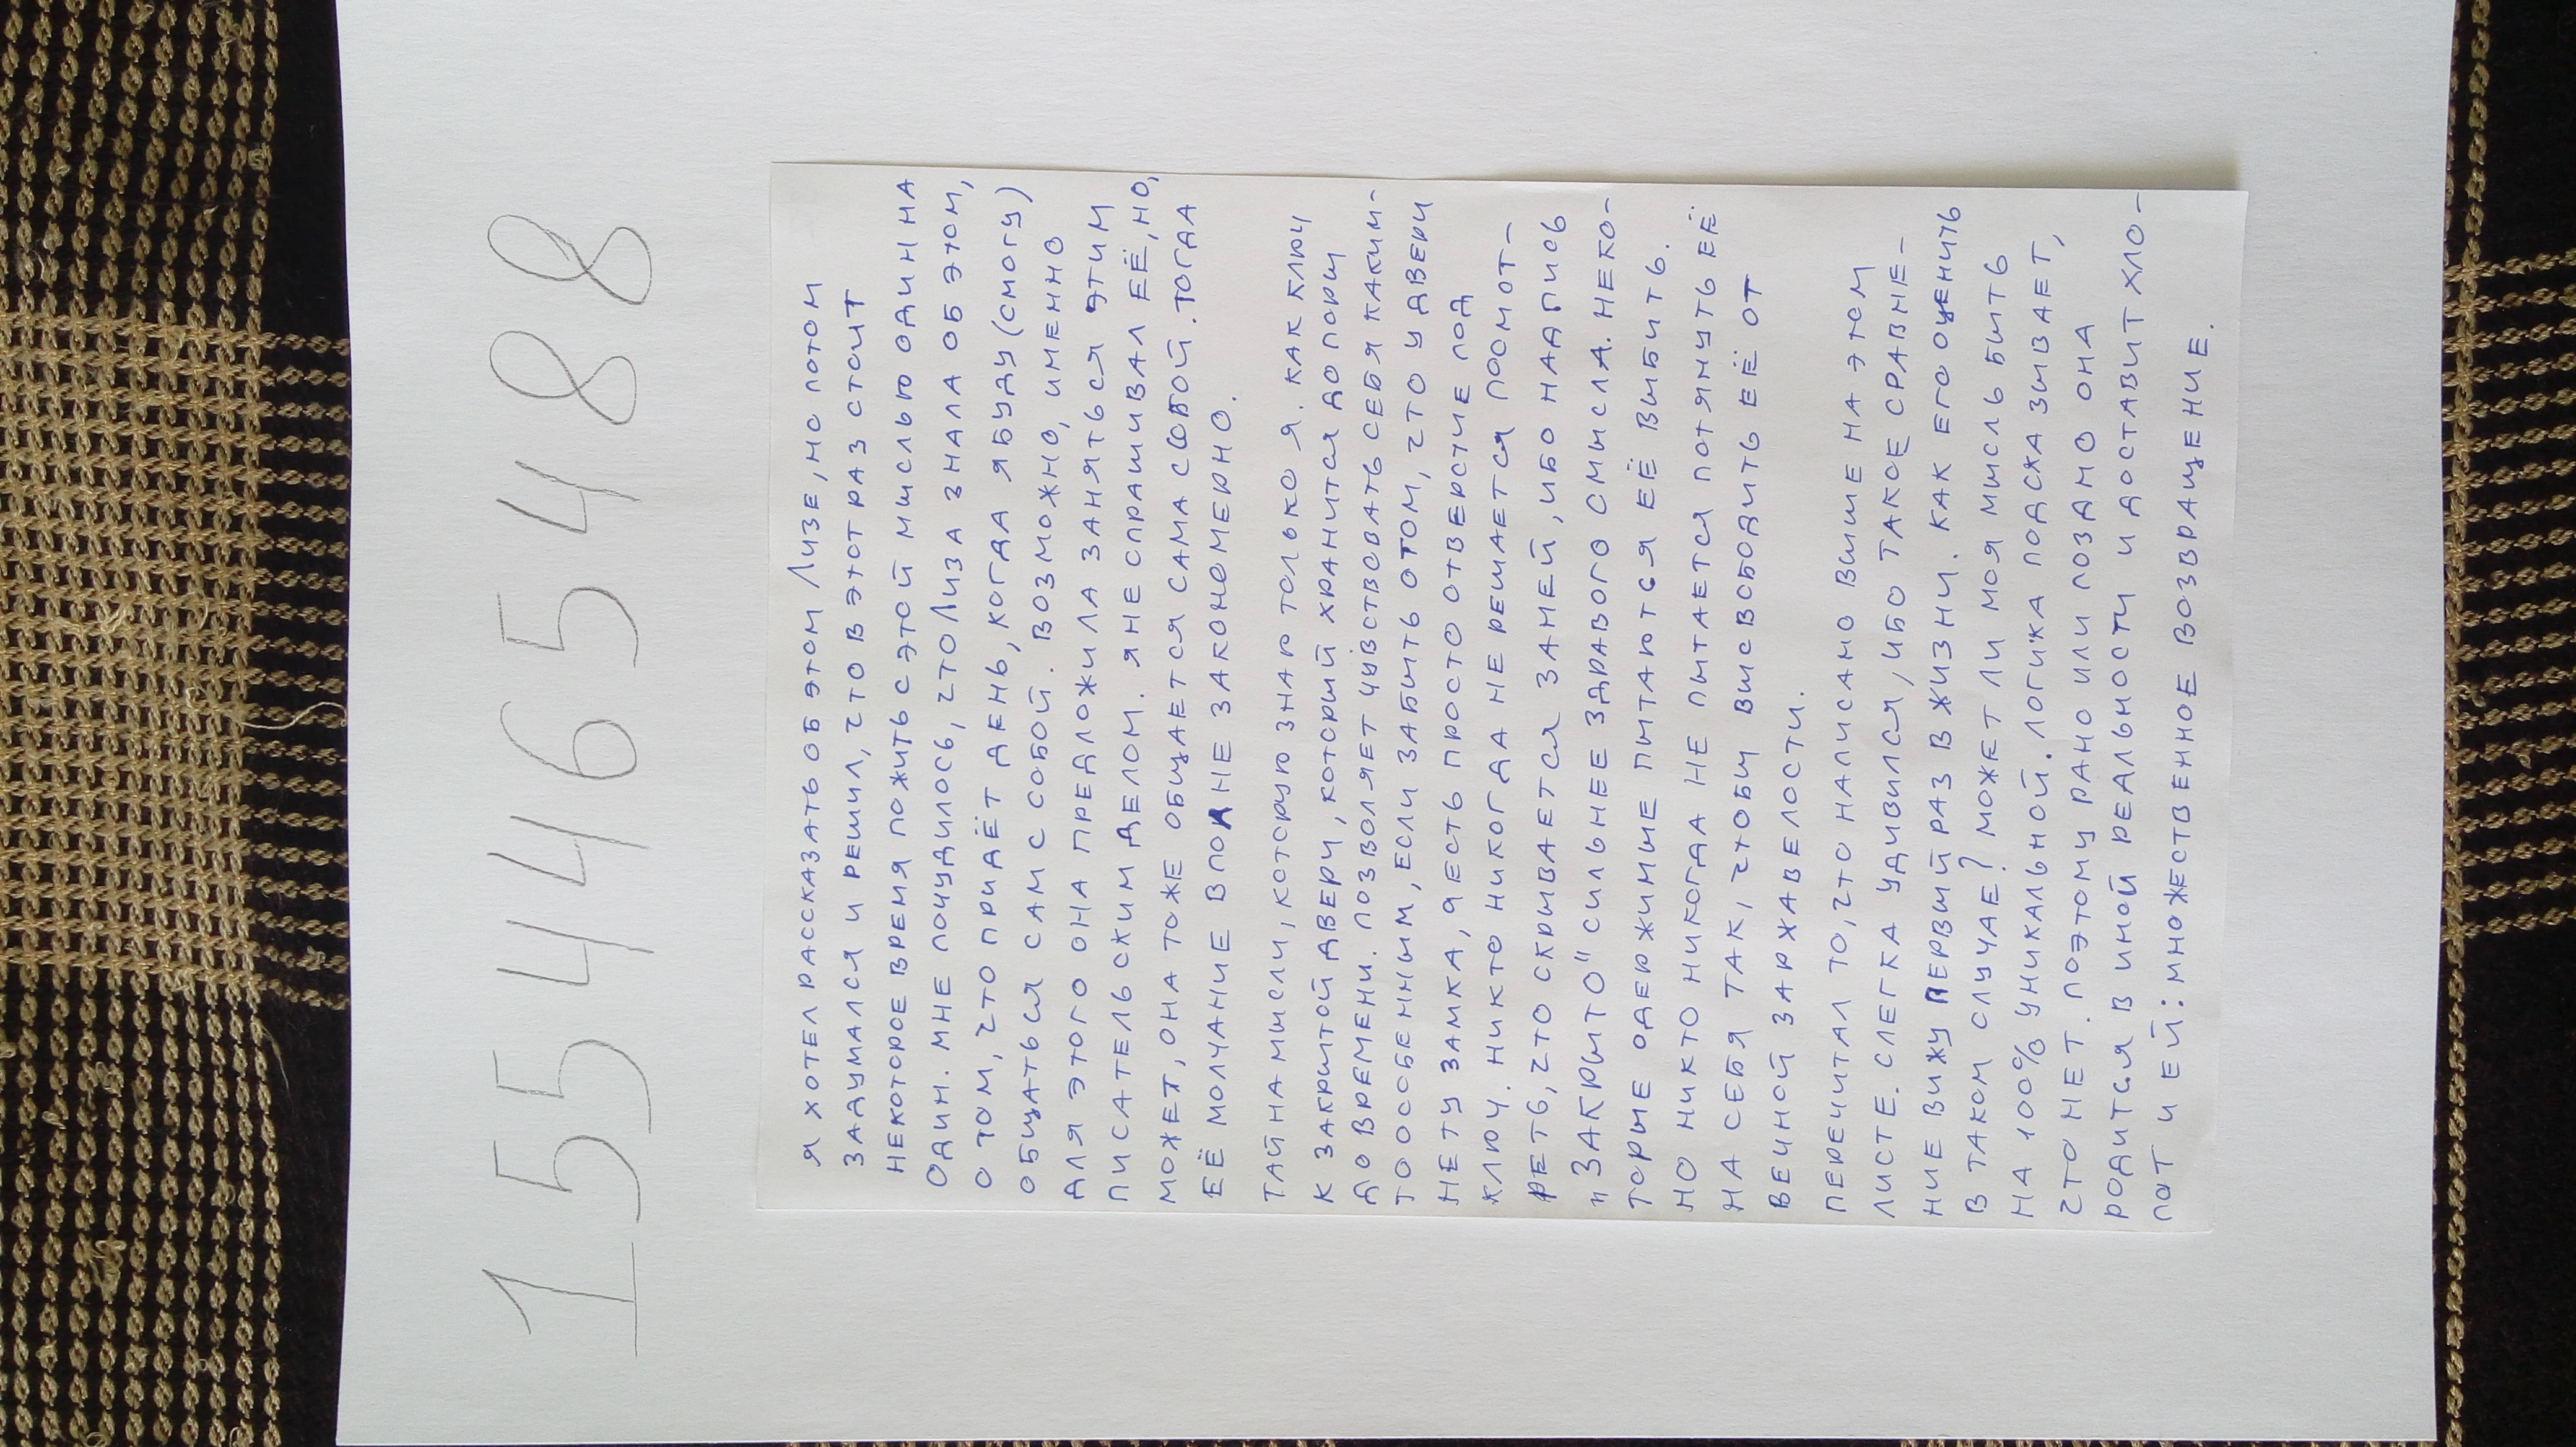 155465488
Я ХОТЕЛ РАССКАЗАТЬ ОБ ЭТОМ ЛИЗЕ, НО ПОТОМ
ЗАДУМАЛСЯ И РЕШИЛ, ЧТО В ЭТОТ РАЗ СТОИТ
НЕКОТОРОЕ ВРЕМЯ ПОЖИТЬ С ЭТОЙ МЫСЛЬЮ ОДИН НА
ОДИН. МНЕ ПОЧУДИЛОСЬ, ЧТО ЛИЗА ЗНАЛА ОБ ЭТОМ,
О ТОМ, ЧТО ПРИДЁТ ДЕНЬ, КОГДА Я БУДУ (СМОГУ)
ОБЩАТЬСЯ САМ С СОБОЙ. ВОЗМОЖНО, ИМЕННО
ДЛЯ ЭТОГО ОНА ПРЕДЛОЖИЛА ЗАНЯТЬСЯ ЭТИМ
ПИСАТЕЛЬСКИМ ДЕЛОМ. Я НЕ СПРАШИВАЛ ЕЁ, НО,
МОЖЕТ, ОНА ТОЖЕ ОБЩАЕТСЯ САМА С СОБОЙ. ТОГДА
ЕЁ МОЛЧАНИЕ ВПОЛНЕ ЗАКОНОМЕРНО.
ТАЙНА МЫСЛИ, КОТОРУЮ ЗНАЮ ТОЛЬКО Я. КАК КЛЮЧ
К ЗАКРЫТОЙ ДВЕРИ, КОТОРЫЙ ХРАНИТСЯ ДО ПОРЫ
ДО ВРЕМЕНИ. ПОЗВОЛЯЕТ ЧУВСТВОВАТЬ СЕБЯ КАКИМ-
ТО ОСОБЕННЫМ, ЕСЛИ ЗАБЫТЬ О ТОМ, ЧТО У ДВЕРИ
НЕТУ ЗАМКА, А ЕСТЬ ПРОСТО ОТВЕРСТИЕ ПОД
КЛЮЧ. НИКТО НИКОГДА НЕ РЕШАЕТСЯ ПОСМОТ-
РЕТЬ, ЧТО СКРЫВАЕТСЯ ЗА НЕЙ, ИБО НАДПИСЬ
„ЗАКРЫТО" СИЛЬНЕЕ ЗДРАВОГО СМЫСЛА. НЕКО-
ТОРЫЕ ОДЕРЖИМЫЕ ПЫТАЮТСЯ ЕЁ ВЫБИТЬ.
НО НИКТО НИКОГДА НЕ ПЫТАЕТСЯ ПОТЯНУТЬ ЕЁ
НА СЕБЯ ТАК, ЧТОБЫ ВЫСВОБОДИТЬ ЕЁ ОТ
ВЕЧНОЙ ЗАРЖАВЕЛОСТИ.
ПЕРЕЧИТАЛ ТО, ЧТО НАПИСАНО ВЫШЕ НА ЭТОМ
ЛИСТЕ. СЛЕГКА УДИВИЛСЯ, ИБО ТАКОЕ СРАВНЕ-
НИЕ ВИЖУ ПЕРВЫЙ РАЗ В ЖИЗНИ. КАК ЕГО ОЦЕНИТЬ
В ТАКОМ СЛУЧАЕ? МОЖЕТ ЛИ МОЯ МЫСЛЬ БЫТЬ
НА 100% УНИКАЛЬНОЙ. ЛОГИКА ПОДСКАЗЫВАЕТ,
ЧТО НЕТ. ПОЭТОМУ РАНО ИЛИ ПОЗДНО ОНА
РОДИТСЯ В ИНОЙ РЕАЛЬНОСТИ И ДОСТАВИТ ХЛО-
ПОТ И ЕЙ: МНОЖЕСТВЕННОЕ ВОЗВРАЩЕНИЕ.